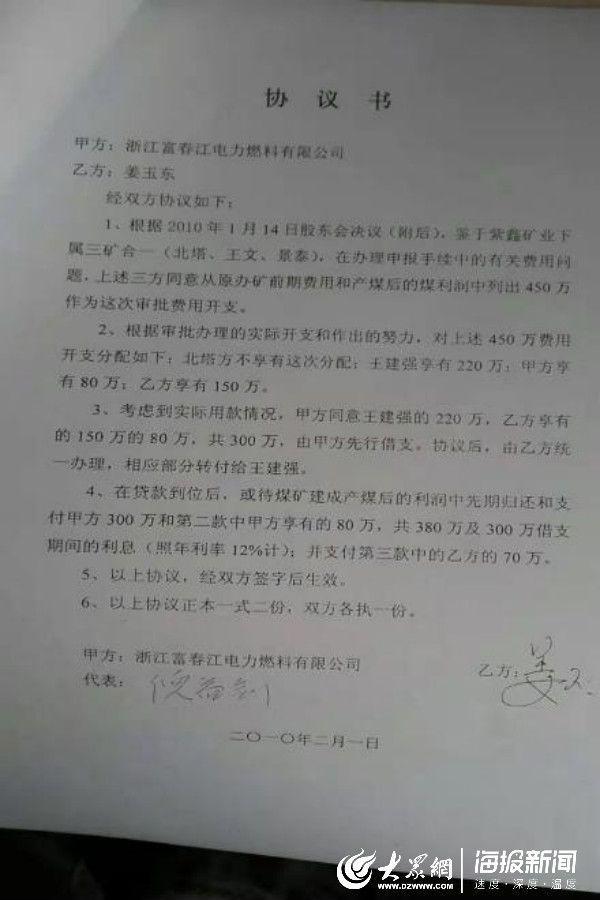 协 议 书
甲方：浙江富春江电力燃料有限公司
乙方：姜玉东
经双方协议如下：
1、根据 2010 年 1 月 14 日股东会决议（附后），鉴于紫鑫矿业下
属三矿合一（北塔、王文、景泰），在办理申报手续中的有关费用问
题，上述三方同意从原办矿前期费用和产煤后的煤利润中列出 450 万
作为这次审批费用开支。
2、根据审批办理的实际开支和作出的努力，对上述 450 万费用
开支分配如下：北塔方不享有这次分配；王建强享有 220 万；甲方享
有 80 万；乙方享有 150 万。
3、考虑到实际用款情况，甲方同意王建强的 220 万，乙方享有
的 150 万的 80 万，共 300 万，由甲方先行借支。协议后，由乙方统
一办理，相应部分转付给王建强。
4、在贷款到位后，或待煤矿建成产煤后的利润中先期归还和支
付甲方 300 万和第二款中甲方享有的 80 万，共 380 万及 300 万借支
期间的利息（照年利率 12%计）；并支付第三款中的乙方的 70 万。
5、以上协议，经双方签字后生效。
6、以上协议正本一式二份，双方各执一份。
甲方：浙江富春江电力燃料有限公司
乙方：姜
代表：
二〇一〇年二月一日
大众网 海报新闻
www.dzwww.com 速度·深度·温度